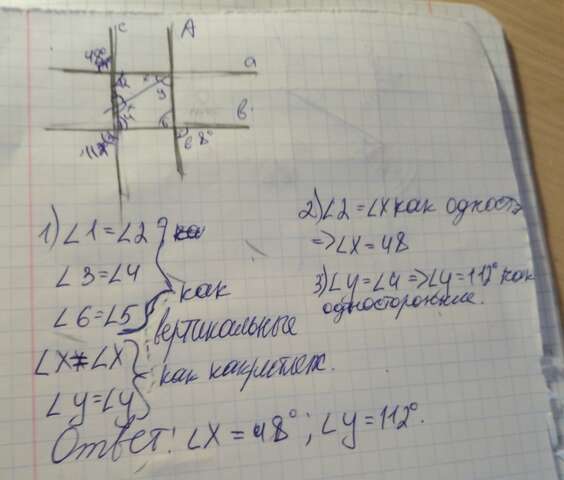 c
A
a
в
48°
у
68°
1) ∠1=∠2
∠3=∠4
∠6=∠5
как
вертикальные
∠X ∠X
∠У=∠У
как накрестлеж.
2) ∠2=∠X как одност
=>∠X=48
3) ∠У=∠4 =>∠У=112° как
односторонние.
Ответ: ∠X=48°; ∠У=112°.